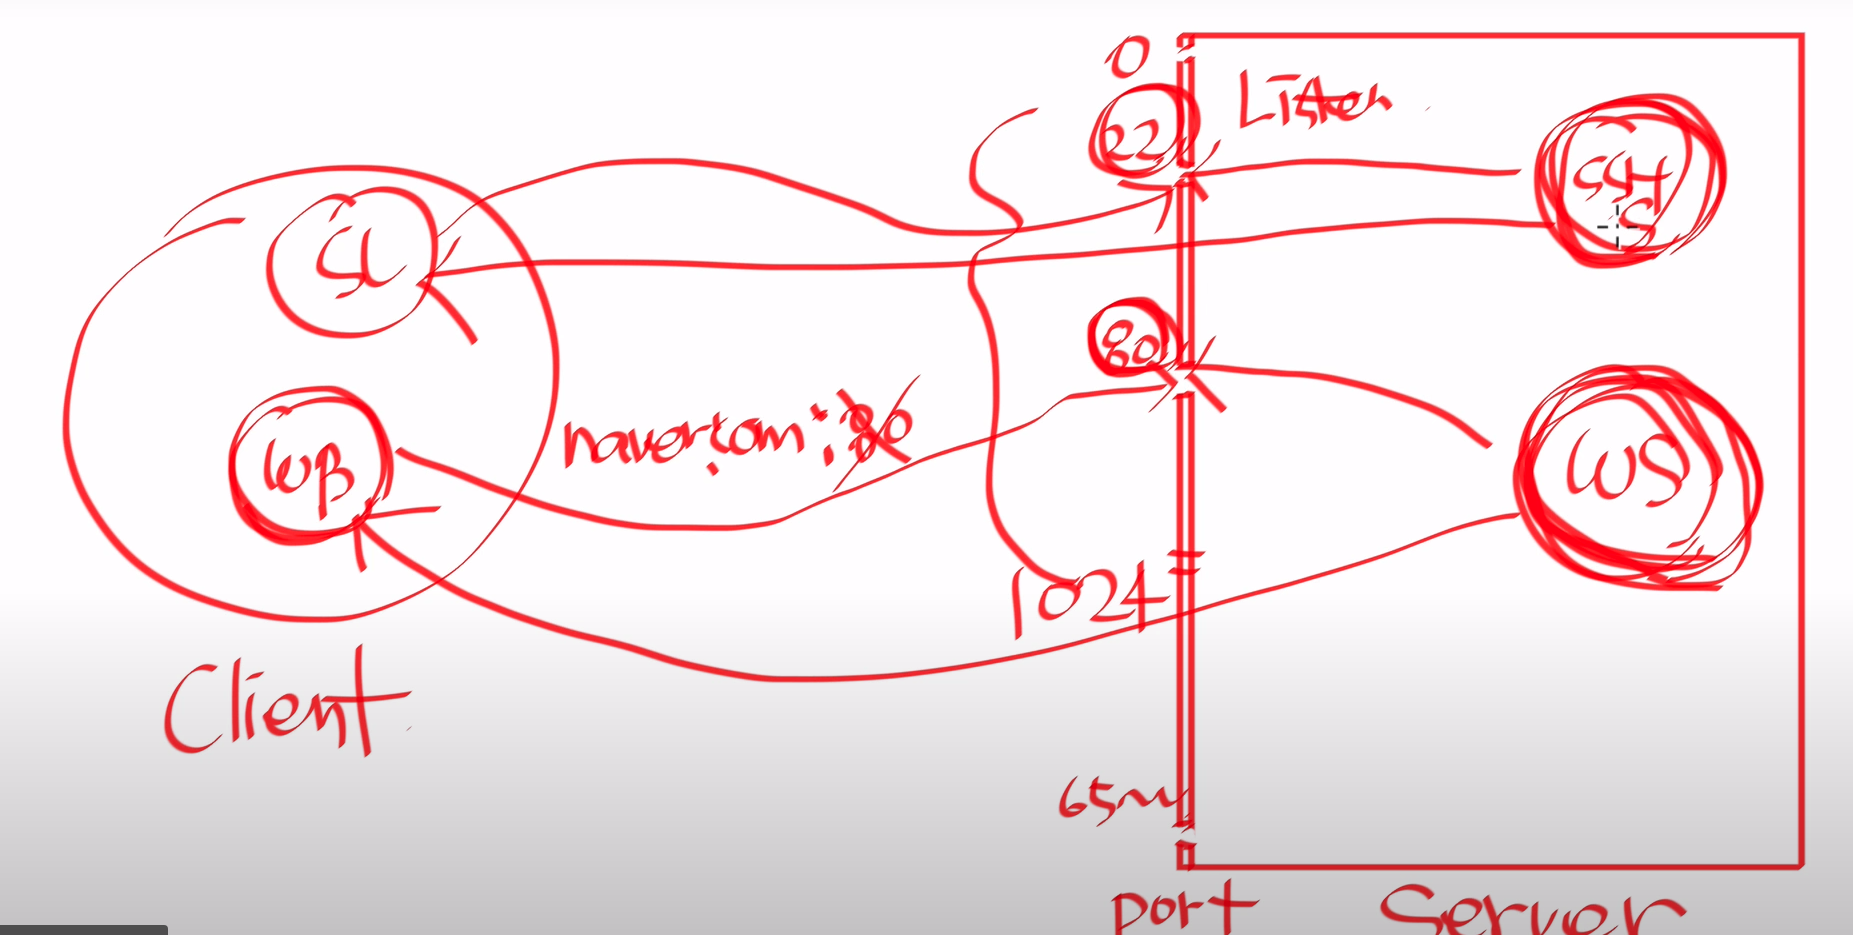 0
22
Listen
SSH
S
SC
80
naver.com:80
WB
WS
1024
Client
65~
port
Server